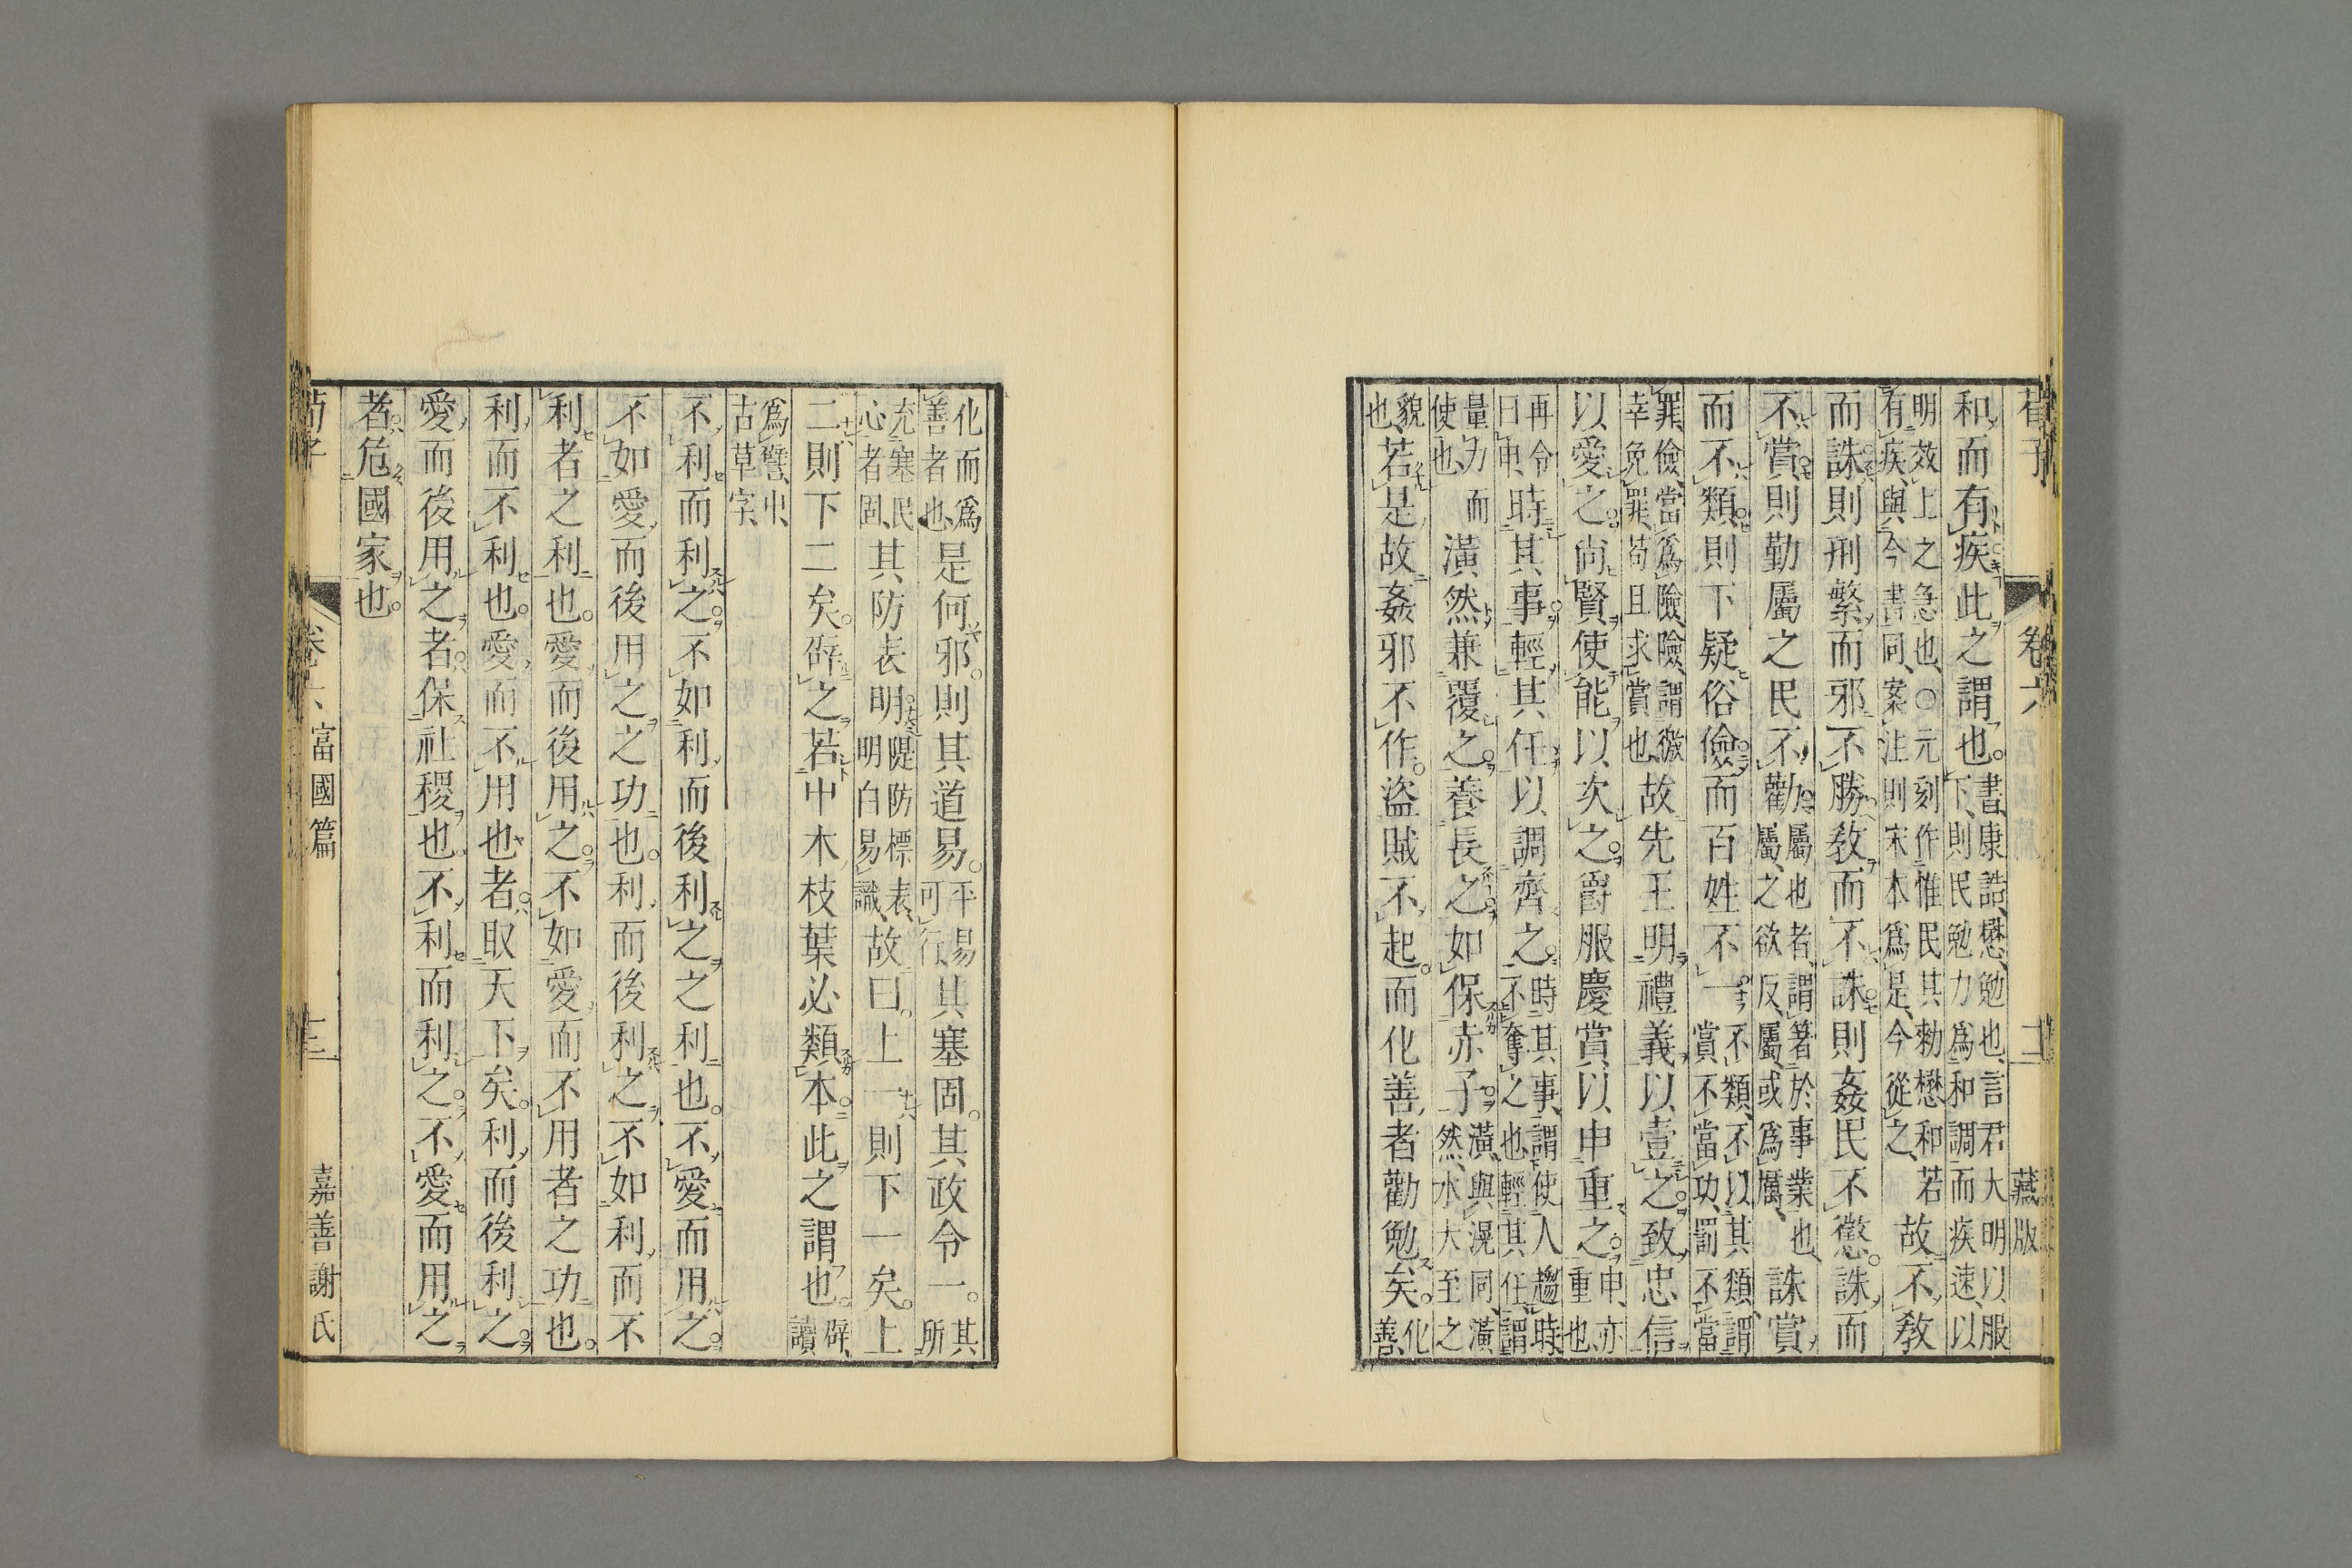 荀子 卷六 二 藏版
和而有疾此之謂也。書康誥懋勉也言君大明以服下則民勉力爲和調而疾速以
明效上之急也○元刻作惟民其勑懋和若有疾與今書同案注則宋本爲是今從之故不敎
而誅則刑繁而邪不勝敎而不誅則姦民不懲。誅而
不賞則勤屬之民不勸屬也者謂著於事業也屬之欲反屬或爲厲誅賞
而不類則下疑俗儉而百姓不一不類不以其類謂賞不當功罰不當
罪儉當爲險險謂徼幸免罪苟且求賞也故先王明禮義以壹之致忠信
以愛之尙賢使能以次之爵服慶賞以申重之申亦重也
再令曰申時其事輕其任以調齊之時其事謂使人趨時不奪之也輕其任謂
量力而使也潢然兼覆之養長之如保赤子潢與滉同潢然水大至之
貌也若是故姦邪不作。盜賊不起。而化善者勸勉矣。化善
化而爲善者也是何邪。則其道易。平易可行其塞固。其政令一。其所
充塞民心者固其防表明隄防標表明白易識故曰。上一則下一矣。上
二則下二矣。辟之若屮木枝葉必類本此之謂也。辟讀
爲譬屮古草字
不利而利之。不如利而後利之之利也。不愛而用之。
不如愛而後用之之功也。利而後利之不如利而不
利者之利也。愛而後用之。不如愛而不用者之功也。
利而不利也。愛而不用也者。取天下矣。利而後利之。
愛而後用之者。保社稷也。不利而利之。不愛而用之
者。危國家也。
荀子 卷六 富國篇 三 嘉善謝氏